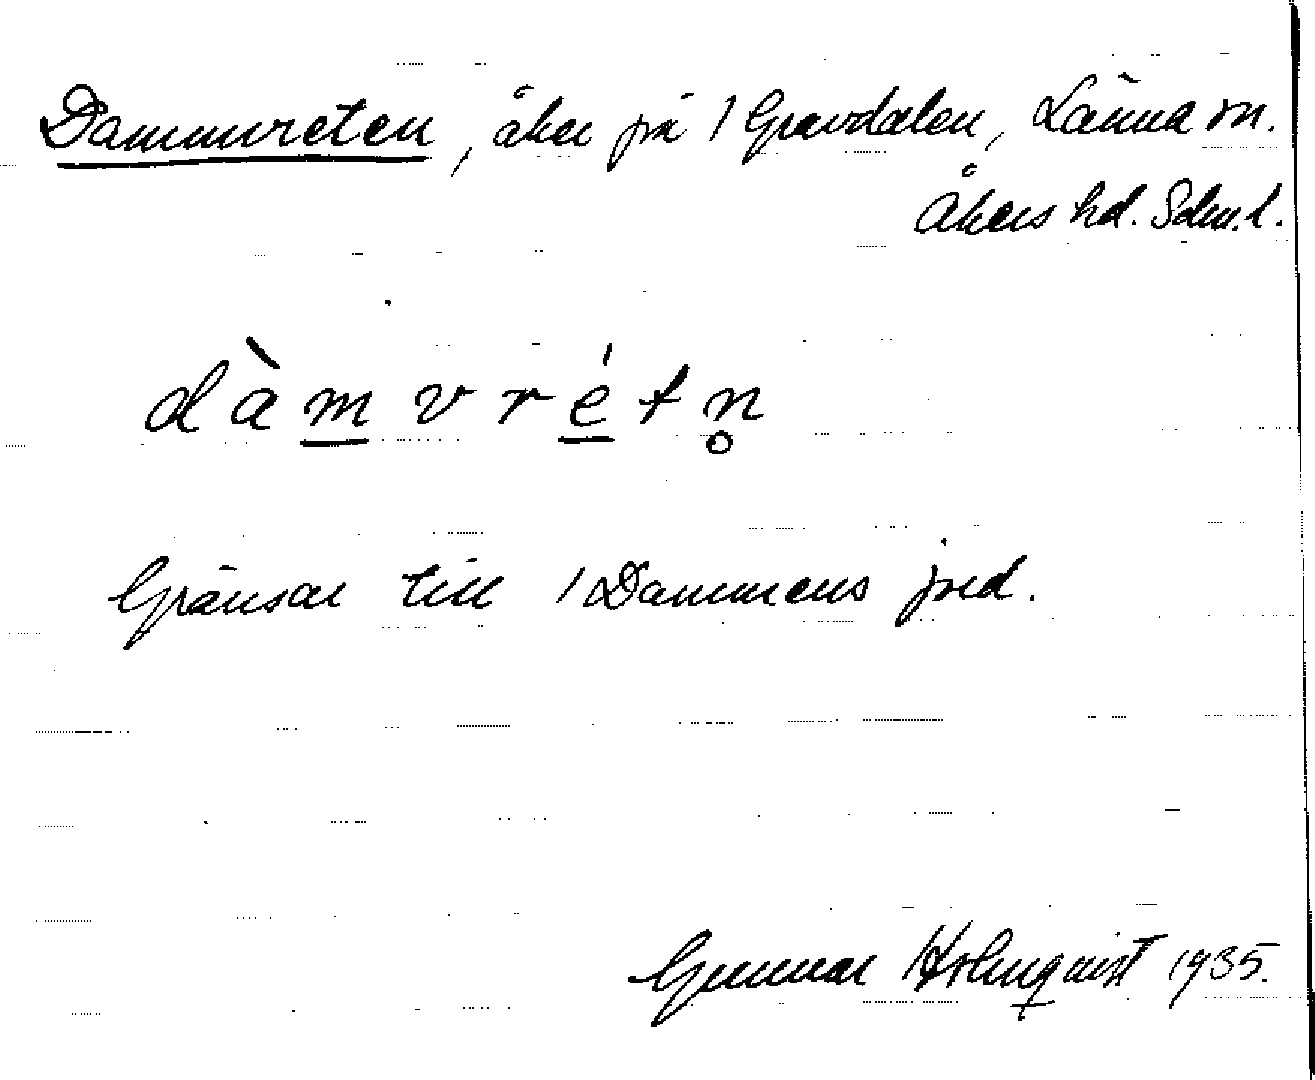 Dammvreten, åker på / Gravdalen, Länna sn.
Åkers hd. Sdm. l.
dàmvrétn̥
Gränsar till / Dammens jord.
Gunnar Holmquist 1935.